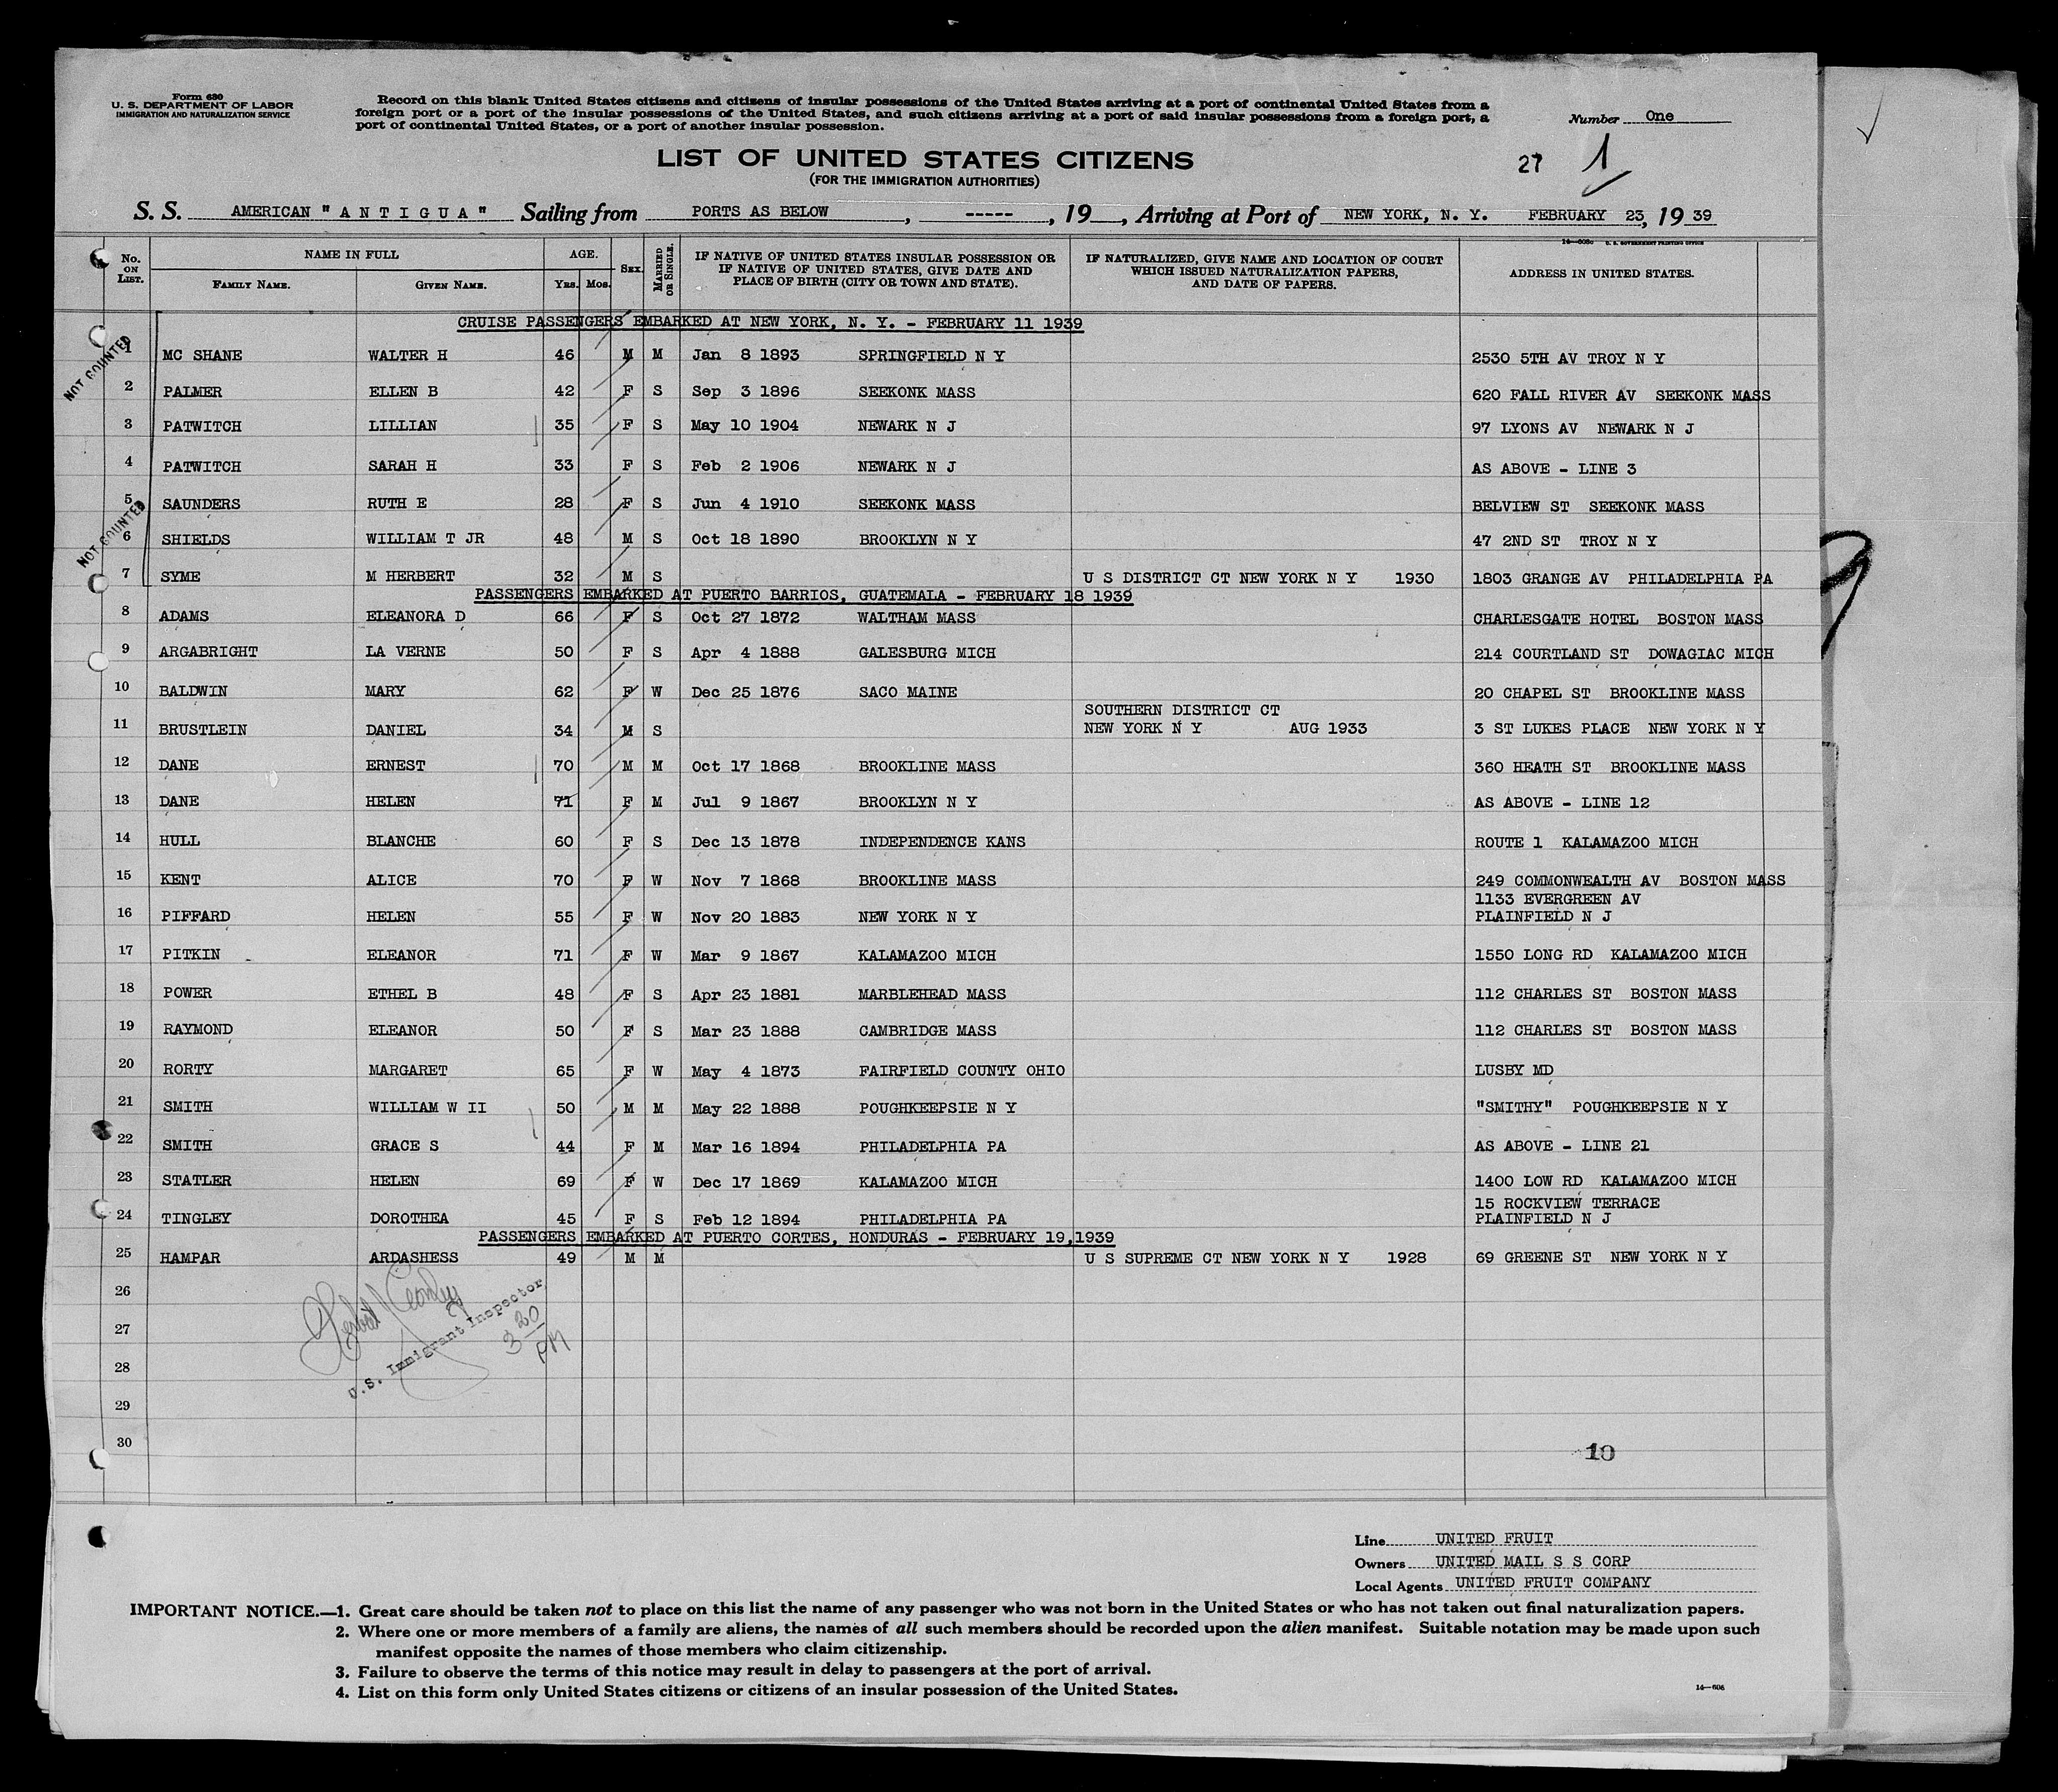 Form 630
U. S. DEPARTMENT OF LABOR
IMMIGRATION AND NATURALIZATION SERVICE
Record on this blank United States citizens and citizens of insular possessions of the United States arriving at a port of continental United States from a
foreign port or a port of the insular possessions of the United States, and such citizens arriving at a port of said insular possessions from a foreign port, a
port of continental United States, or a port of another insular possession.
Number One
LIST OF UNITED STATES CITIZENS
(FOR THE IMMIGRATION AUTHORITIES)
27 1
S. S. AMERICAN "A N T I G U A" Sailing from PORTS AS BELOW, -----, 19__, Arriving at Port of NEW YORK, N. Y. FEBRUARY 23, 19 39
No. ON LIST. NAME IN FULL FAMILY NAME. GIVEN NAME. AGE. Yrs. Mos. SEX. MARRIED OR SINGLE. IF NATIVE OF UNITED STATES INSULAR POSSESSION OR IF NATIVE OF UNITED STATES, GIVE DATE AND PLACE OF BIRTH (CITY OR TOWN AND STATE). IF NATURALIZED, GIVE NAME AND LOCATION OF COURT WHICH ISSUED NATURALIZATION PAPERS, AND DATE OF PAPERS. ADDRESS IN UNITED STATES.
CRUISE PASSENGERS EMBARKED AT NEW YORK, N. Y. - FEBRUARY 11 1939
NOT COUNTED
1 MC SHANE WALTER H 46 M M Jan 8 1893 SPRINGFIELD N Y 2530 5TH AV TROY N Y
2 PALMER ELLEN B 42 F S Sep 3 1896 SEEKONK MASS 620 FALL RIVER AV SEEKONK MASS
3 PATWITCH LILLIAN 35 F S May 10 1904 NEWARK N J 97 LYONS AV NEWARK N J
4 PATWITCH SARAH H 33 F S Feb 2 1906 NEWARK N J AS ABOVE - LINE 3
5 SAUNDERS RUTH E 28 F S Jun 4 1910 SEEKONK MASS BELVIEW ST SEEKONK MASS
NOT COUNTED
6 SHIELDS WILLIAM T JR 48 M S Oct 18 1890 BROOKLYN N Y 47 2ND ST TROY N Y
7 SYME M HERBERT 32 M S U S DISTRICT CT NEW YORK N Y 1930 1803 GRANGE AV PHILADELPHIA PA
PASSENGERS EMBARKED AT PUERTO BARRIOS, GUATEMALA - FEBRUARY 18 1939
8 ADAMS ELEANORA D 66 F S Oct 27 1872 WALTHAM MASS CHARLESGATE HOTEL BOSTON MASS
9 ARGABRIGHT LA VERNE 50 F S Apr 4 1888 GALESBURG MICH 214 COURTLAND ST DOWAGIAC MICH
10 BALDWIN MARY 62 F W Dec 25 1876 SACO MAINE 20 CHAPEL ST BROOKLINE MASS
SOUTHERN DISTRICT CT
11 BRUSTLEIN DANIEL 34 M S NEW YORK N Y AUG 1933 3 ST LUKES PLACE NEW YORK N Y
12 DANE ERNEST 70 M M Oct 17 1868 BROOKLINE MASS 360 HEATH ST BROOKLINE MASS
13 DANE HELEN 71 F M Jul 9 1867 BROOKLYN N Y AS ABOVE - LINE 12
14 HULL BLANCHE 60 F S Dec 13 1878 INDEPENDENCE KANS ROUTE 1 KALAMAZOO MICH
15 KENT ALICE 70 F W Nov 7 1868 BROOKLINE MASS 249 COMMONWEALTH AV BOSTON MASS
1133 EVERGREEN AV
16 PIFFARD HELEN 55 F W Nov 20 1883 NEW YORK N Y PLAINFIELD N J
17 PITKIN ELEANOR 71 F W Mar 9 1867 KALAMAZOO MICH 1550 LONG RD KALAMAZOO MICH
18 POWER ETHEL B 48 F S Apr 23 1881 MARBLEHEAD MASS 112 CHARLES ST BOSTON MASS
19 RAYMOND ELEANOR 50 F S Mar 23 1888 CAMBRIDGE MASS 112 CHARLES ST BOSTON MASS
20 RORTY MARGARET 65 F W May 4 1873 FAIRFIELD COUNTY OHIO LUSBY MD
21 SMITH WILLIAM W II 50 M M May 22 1888 POUGHKEEPSIE N Y "SMITHY" POUGHKEEPSIE N Y
22 SMITH GRACE S 44 F M Mar 16 1894 PHILADELPHIA PA AS ABOVE - LINE 21
23 STATLER HELEN 69 F W Dec 17 1869 KALAMAZOO MICH 1400 LOW RD KALAMAZOO MICH
15 ROCKVIEW TERRACE
24 TINGLEY DOROTHEA 45 F S Feb 12 1894 PHILADELPHIA PA PLAINFIELD N J
PASSENGERS EMBARKED AT PUERTO CORTES, HONDURAS - FEBRUARY 19,1939
25 HAMPAR ARDASHESS 49 M M U S SUPREME CT NEW YORK N Y 1928 69 GREENE ST NEW YORK N Y
26
27
28
29
30
U.S. Immigrant Inspector
3 20 PM
10
Line UNITED FRUIT
Owners UNITED MAIL S S CORP
Local Agents UNITED FRUIT COMPANY
IMPORTANT NOTICE.—1. Great care should be taken not to place on this list the name of any passenger who was not born in the United States or who has not taken out final naturalization papers.
2. Where one or more members of a family are aliens, the names of all such members should be recorded upon the alien manifest. Suitable notation may be made upon such
manifest opposite the names of those members who claim citizenship.
3. Failure to observe the terms of this notice may result in delay to passengers at the port of arrival.
4. List on this form only United States citizens or citizens of an insular possession of the United States.